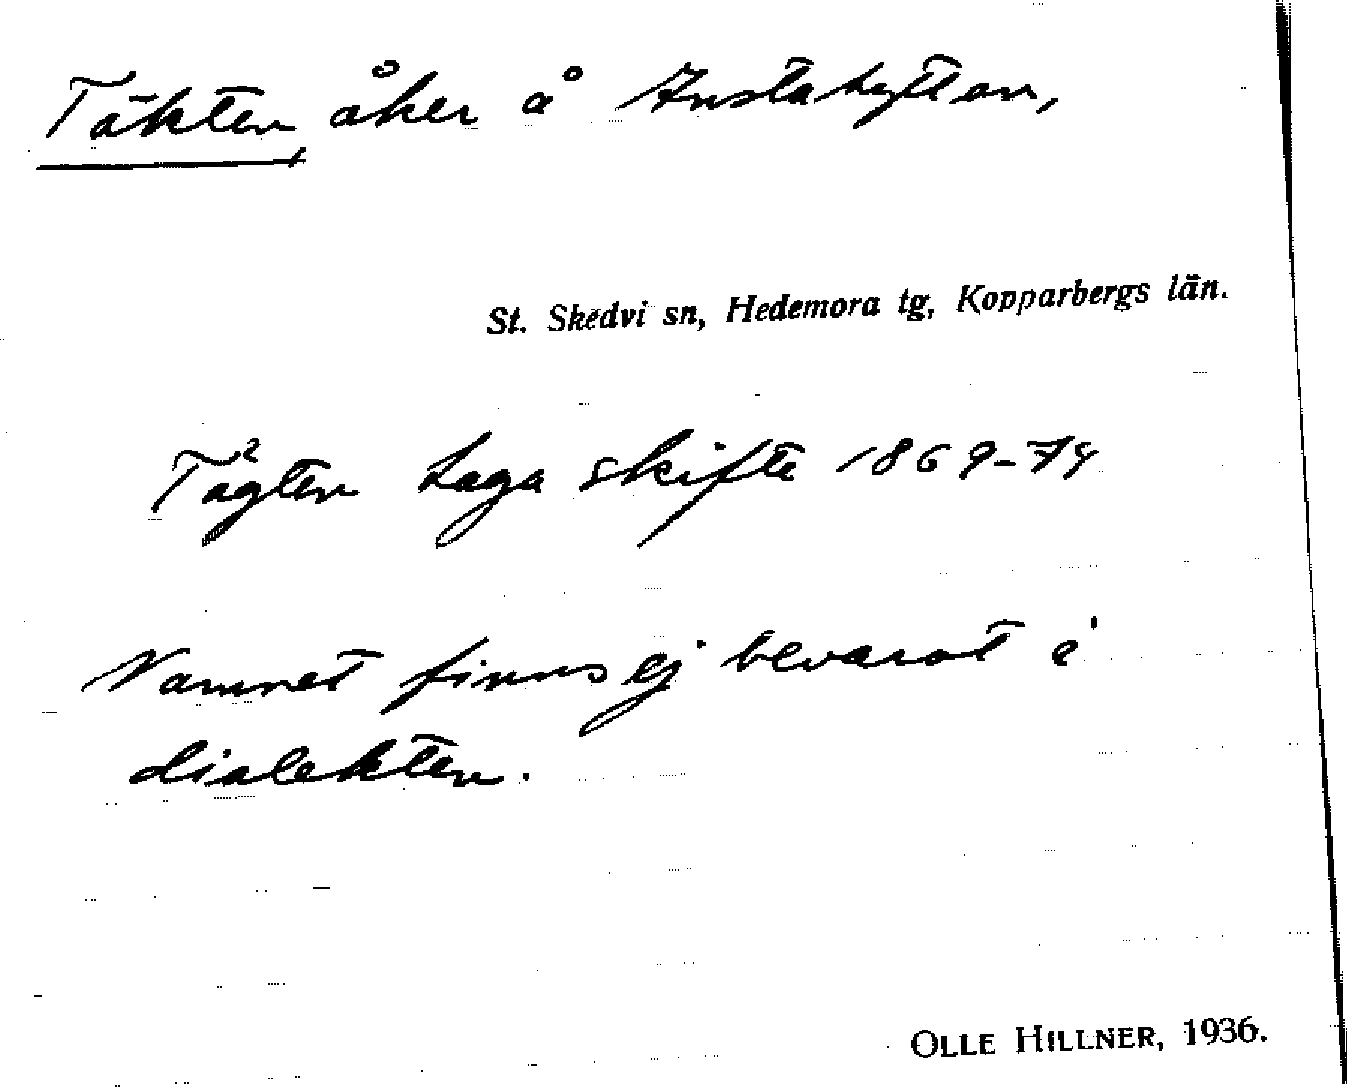 Täkten, åker å Instahyttan,
St. Skedvi sn, Hedemora tg, Kopparbergs län.
Tägten Laga skifte 1869-74
Namnet finns ej bevarat i
dialekten.
OLLE HILLNER, 1936.